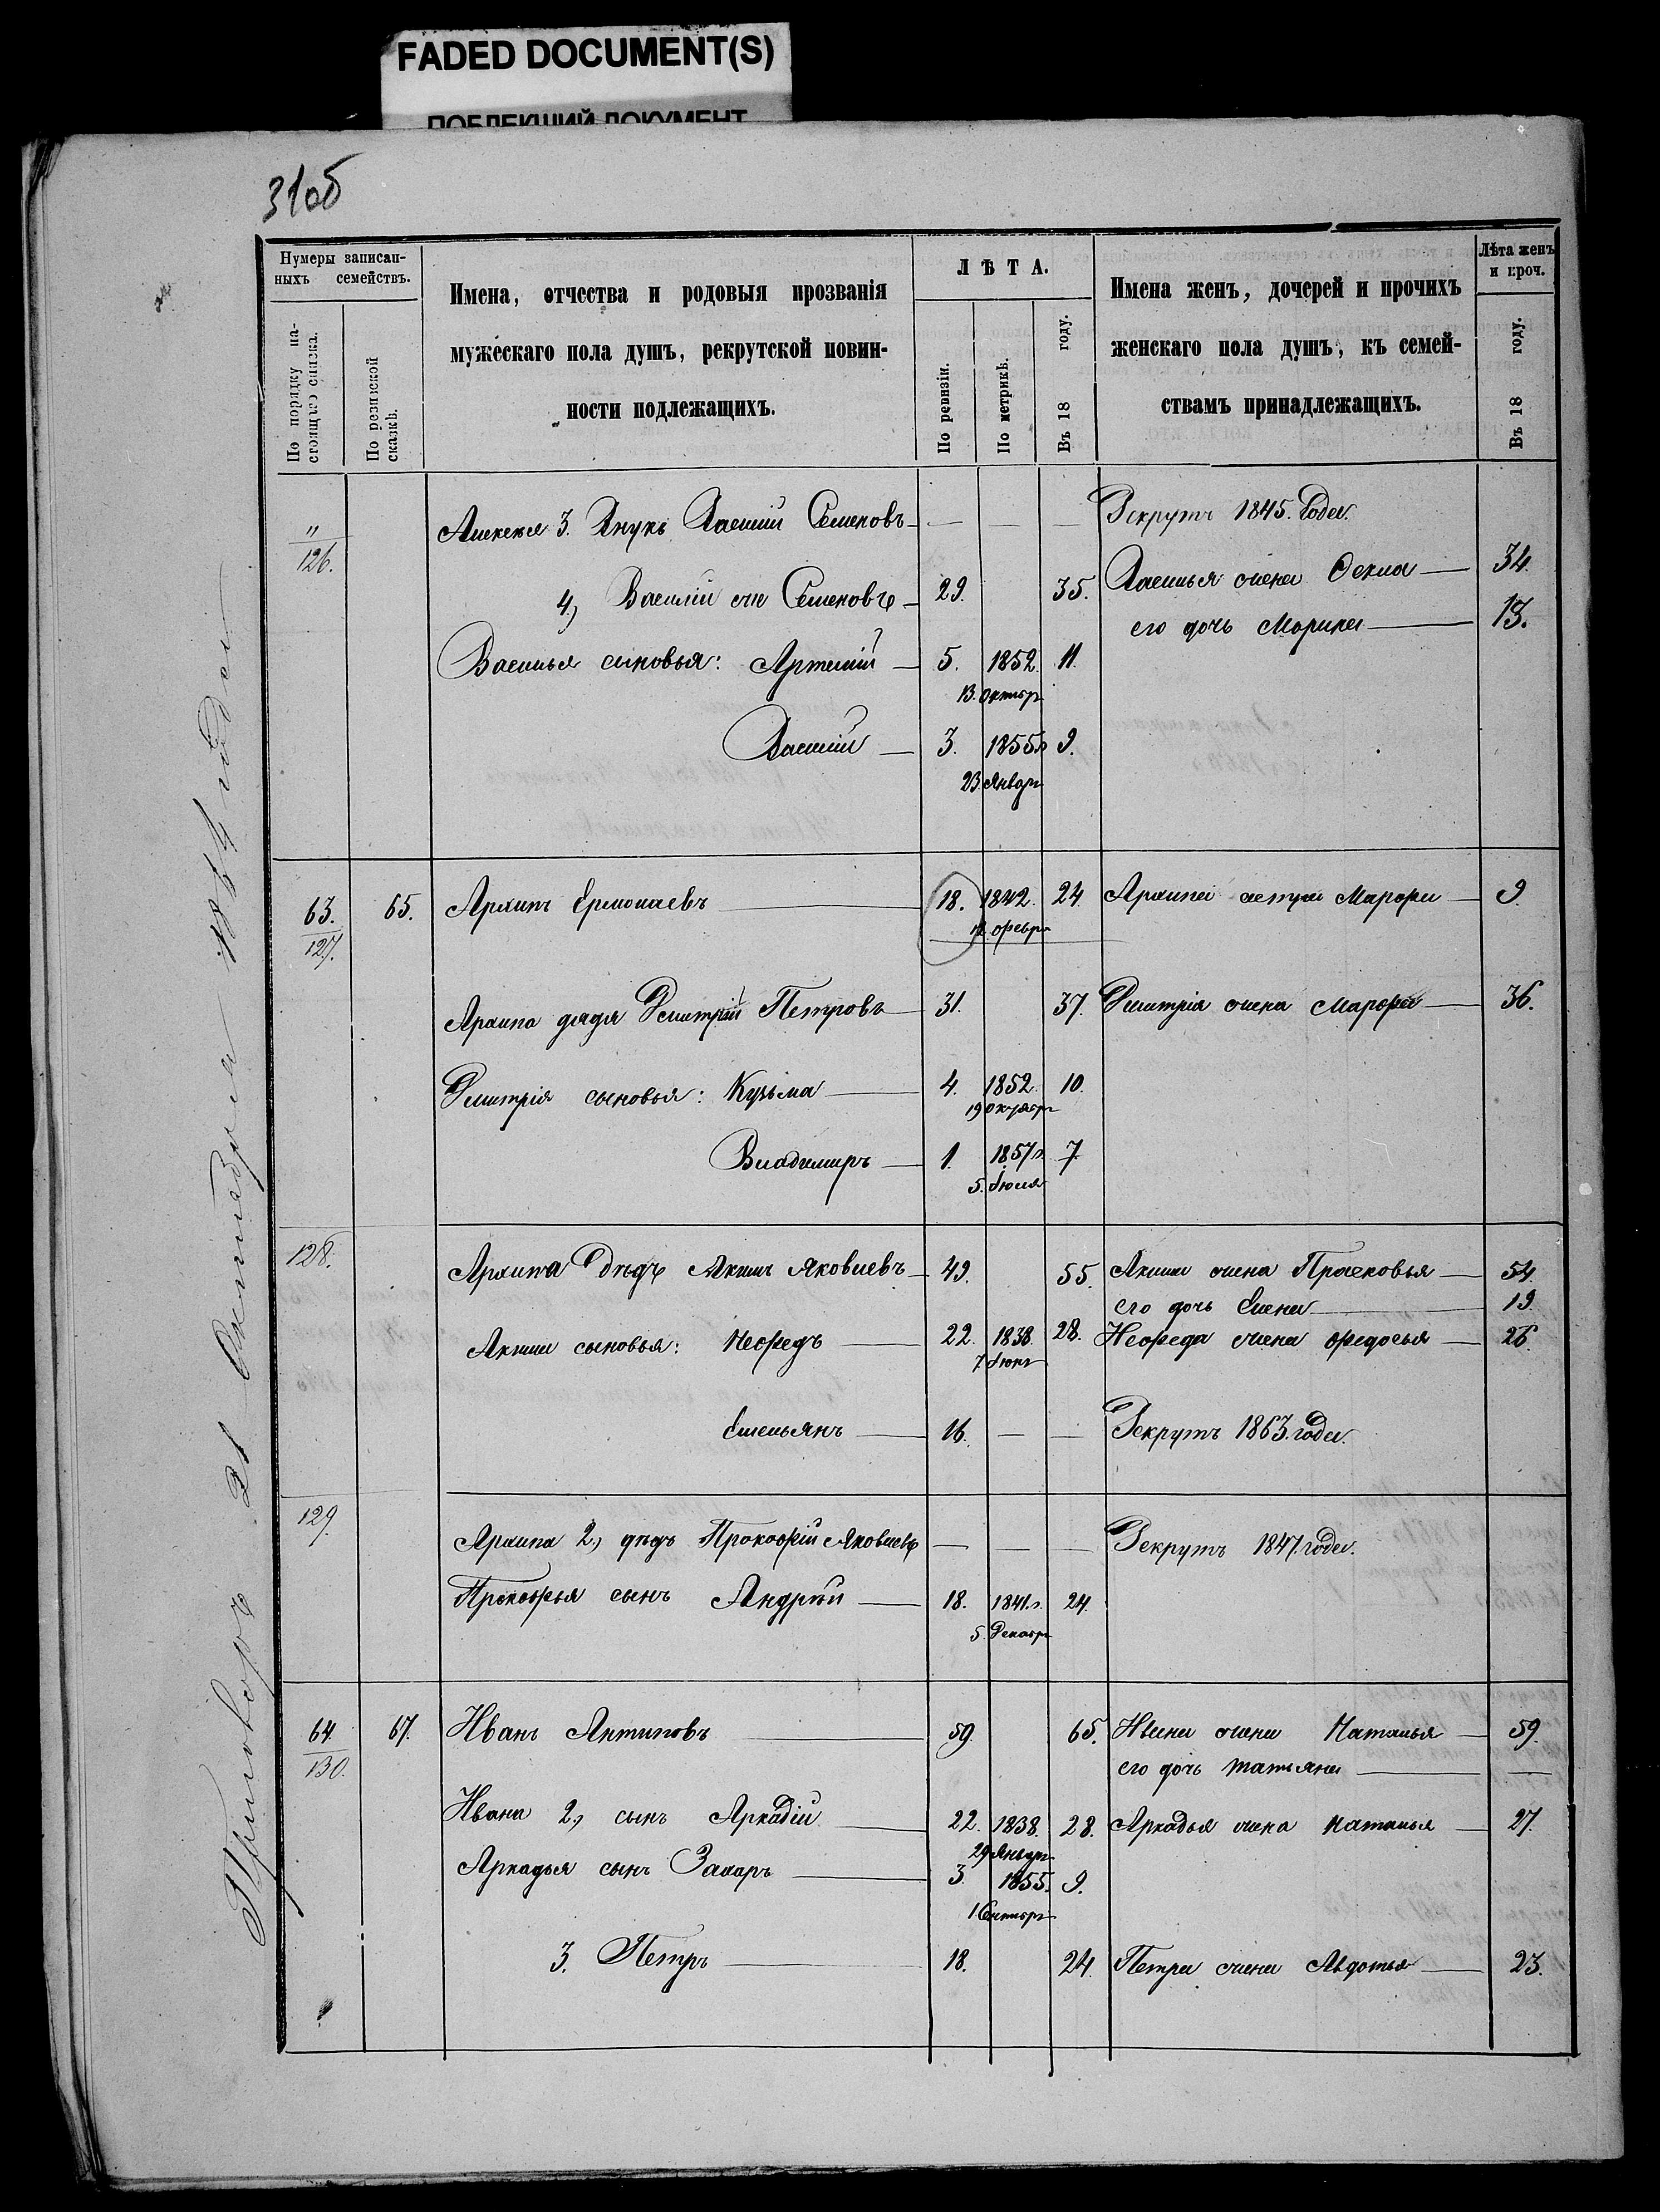 FADED DOCUMENT(S)
ПОБЛЕКШИЙ ДОКУМЕНТ
31об
Нумеры записан-
ныхъ семействъ.
По порядку на-
стоящаго списка.
По ревизской
сказкѣ.
Имена, отчества и родовыя прозванія
мужескаго пола душъ, рекрутской повин-
ности подлежащихъ.
ЛѢТА.
По ревизіи.
По метрикѣ.
Въ 18 году.
Имена женъ, дочерей и прочихъ
женскаго пола душъ, къ семей-
ствамъ принадлежащихъ.
Лѣта женъ
и проч.
Въ 18 году.
" 126. Алексѣя 3. Внукъ Василій Семеновъ — — — Рекрутъ 1845. Года.
4, Василій Семеновъ 29. 35. Василья жена 34.
его дочь Марина 13.
Василья сыновья: Артемій 5. 1852. 11.
13. Октябр
Василій 3. 1855г 9.
23 Январ
63. 127. 65. Архипъ Ермолаевъ 18. 1842. 24 Архипа сестра Марфа 9.
12 февр
Архипа дядя Дмитрій Петровъ 31. 37. Дмитрія жена Марфа 36.
Дмитрія сыновья: Кузьма 4. 1852. 10.
19 Октябр
Владимиръ 1. 1857г. 7.
5. Июля
128. Архипа Дѣдъ Яковлевъ 49. 55. жена Прасковья 54.
его дочь Елена 19.
сыновья: Нефедъ 22. 1838. 28. Нефеда жена Федосья 26.
7. Июн
Емельянъ 16. — — Рекрутъ 1863. года.
129. Архипа 2, дѣдъ Прокофій Яковлевъ — — — Рекрутъ 1847. года.
Прокофья сынъ Андрѣй 18. 1841.г. 24.
5. Декабр
64. 130. 67. Иванъ Антиповъ 59. 65. Ивана жена Наталья 59.
его дочь Татьяна —
Ивана 2, сынъ Аркадій 22. 1838. 28. Аркадья жена Наталья 27.
29 Январ
Аркадья сынъ Захаръ 3. 1855. 9.
1. Сентябр
3. Петръ 18. 24. Петра жена Авдотья 23.
Приговоръ 21 1864 года